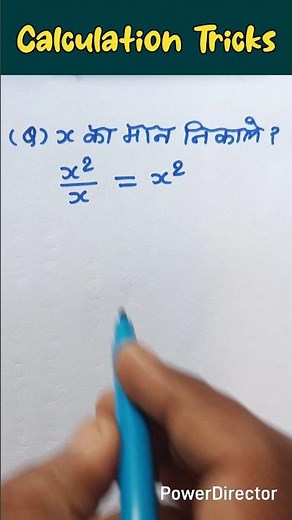 Calculation Tricks
(Q) x का मान निकाले ?
x²/x = x²
PowerDirector